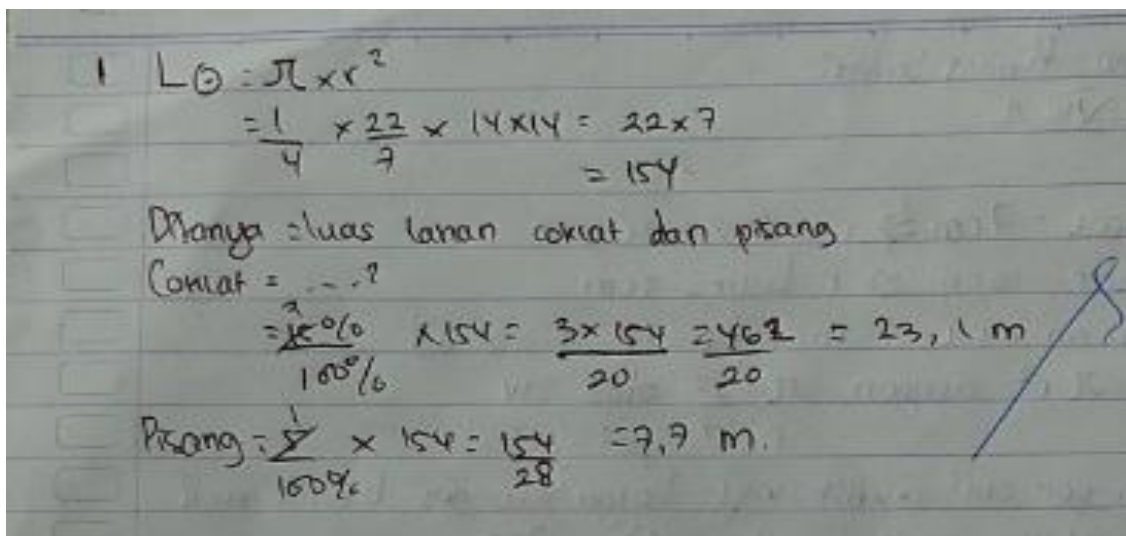 1 L⊙ = π × r²
= 1/4 × 22/7 × 14×14 = 22×7
= 154
Ditanya = luas lahan coklat dan pisang
Coklat = ...?
= 15%/100% × 154 = 3×154/20 = 462/20 = 23,1 m
Pisang = 5/100% × 154 = 154/28 = 7,7 m.